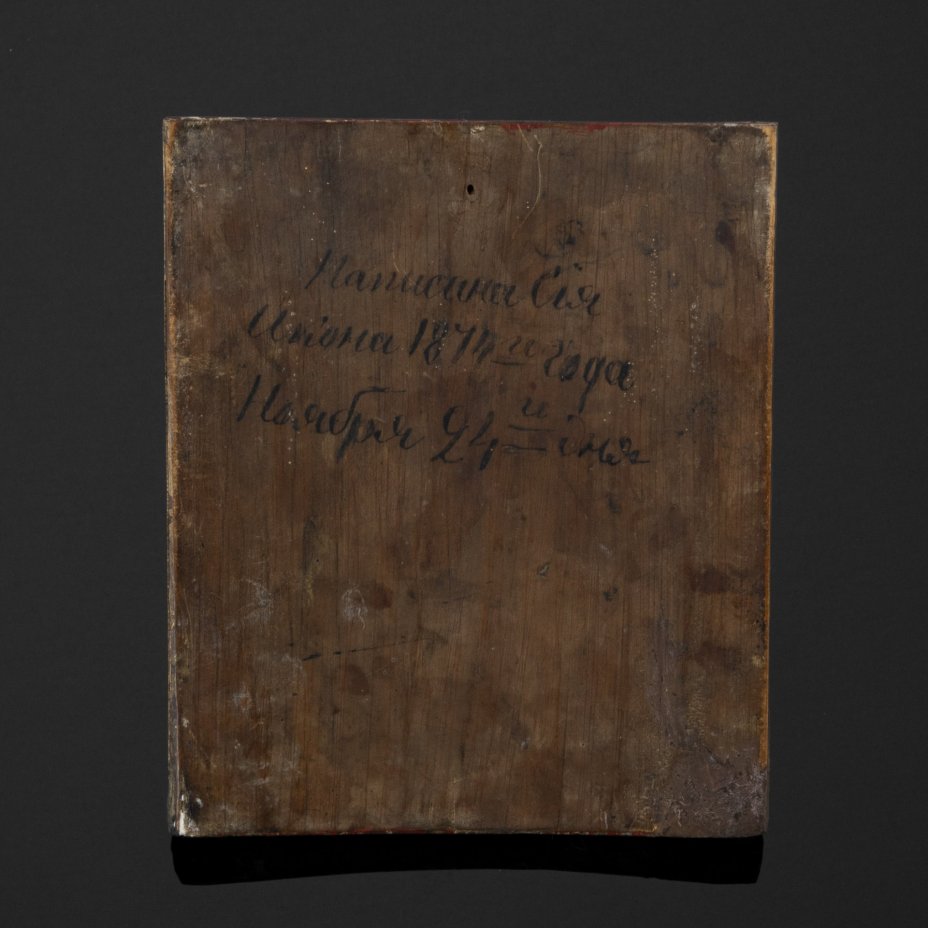 Написина Сія
Икона 1874 и года
Ноября 24 и дня